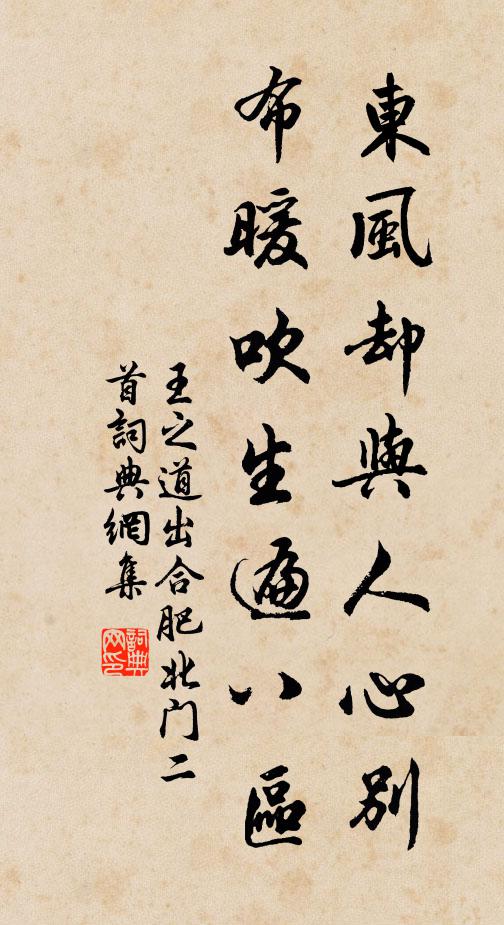 東風却與人心別
布暖吹生遍八區
王之道出合肥北门二
首詞典網集
詞典
网印